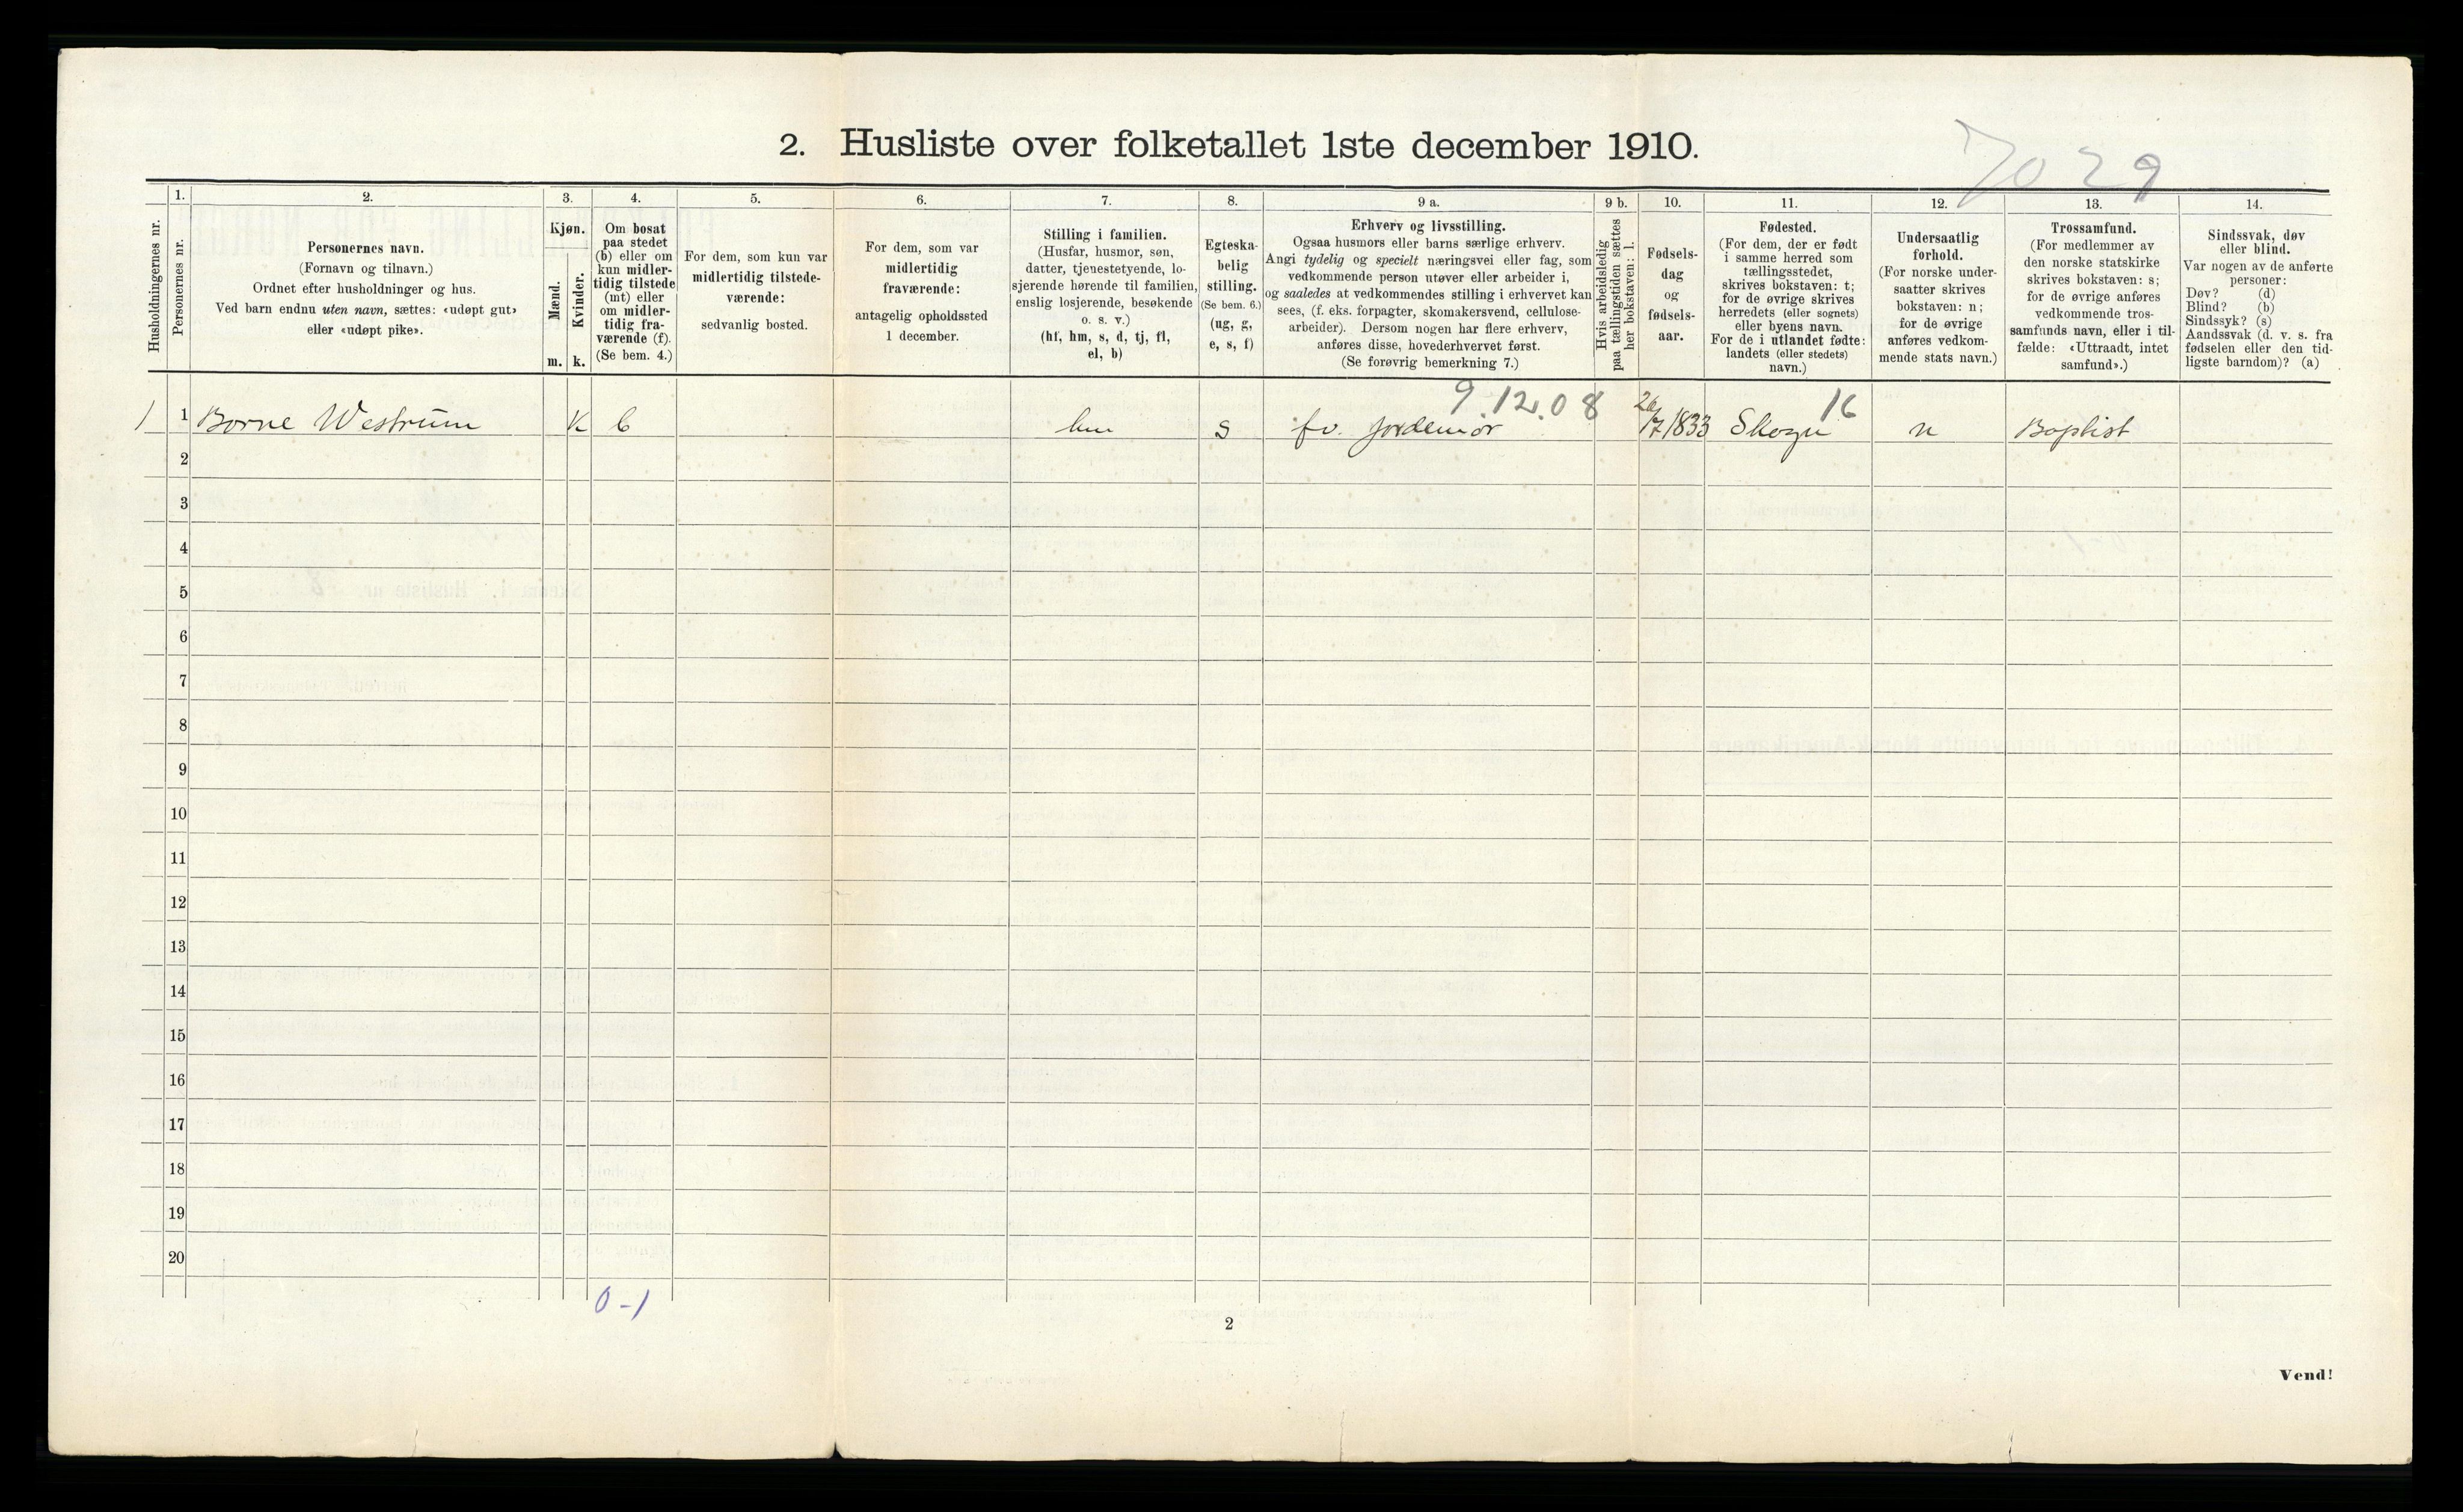 7029
2. Husliste over folketallet 1ste december 1910.
Husholdningernes nr.
1.
Personernes nr.
2.
Personernes navn.
(Fornavn og tilnavn.)
Ordnet efter husholdninger og hus.
Ved barn endnu uten navn, sættes: «udøpt gut»
eller «udøpt pike».
3.
Kjøn.
Mænd.
Kvinder.
m. k.
4.
Om bosat
paa stedet
(b) eller om
kun midler-
tidig tilstede
(mt) eller
om midler-
tidig fra-
værende (f).
(Se bem. 4.)
5.
For dem, som kun var
midlertidig tilstede-
værende:
sedvanlig bosted.
6.
For dem, som var
midlertidig
fraværende:
antagelig opholdssted
1 december.
7.
Stilling i familien.
(Husfar, husmor, søn,
datter, tjenestetyende, lo-
sjerende hørende til familien,
enslig losjerende, besøkende
o. s. v.)
(hf, hm, s, d, tj, fl,
el, b)
8.
Egteska-
belig
stilling.
(Se bem. 6.)
(ug, g,
e, s, f)
9 a.
Erhverv og livsstilling.
Ogsaa husmors eller barns særlige erhverv.
Angi tydelig og specielt næringsvei eller fag, som
vedkommende person utøver eller arbeider i,
og saaledes at vedkommendes stilling i erhvervet kan
sees, (f. eks. forpagter, skomakersvend, cellulose-
arbeider). Dersom nogen har flere erhverv,
anføres disse, hovederhvervet først.
(Se forøvrig bemerkning 7.)
9 b.
Hvis arbeidsledig
paa tællingstiden sættes
her bokstaven: l.
10.
Fødsels-
dag
og
fødsels-
aar.
11.
Fødested.
(For dem, der er født
i samme herred som
tællingsstedet,
skrives bokstaven: t;
for de øvrige skrives
herredets (eller sognets)
eller byens navn.
For de i utlandet fødte:
landets (eller stedets)
navn.)
12.
Undersaatlig
forhold.
(For norske under-
saatter skrives
bokstaven: n;
for de øvrige
anføres vedkom-
mende stats navn.)
13.
Trossamfund.
(For medlemmer av
den norske statskirke
skrives bokstaven: s;
for de øvrige anføres
vedkommende tros-
samfunds navn, eller i til-
fælde: «Uttraadt, intet
samfund».)
14.
Sindssvak, døv
eller blind.
Var nogen av de anførte
personer:
Døv? (d)
Blind? (b)
Sindssyk? (s)
Aandssvak (d. v. s. fra
fødselen eller den tid-
ligste barndom)? (a)
9.12.08 16
1 1 Borne Westrum K b hm s fv. jordemor 26/7 1833 Skogn n Baptist
2
3
4
5
6
7
8
9
10
11
12
13
14
15
16
17
18
19
20
0-1
2
Vend!